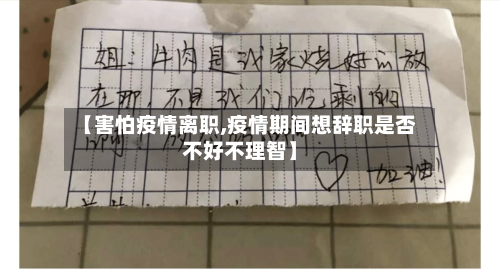 姐：牛肉是我家烧好的放
在那，不是我们吃剩的
【害怕疫情离职,疫情期间想辞职是否
不好不理智】
加油！